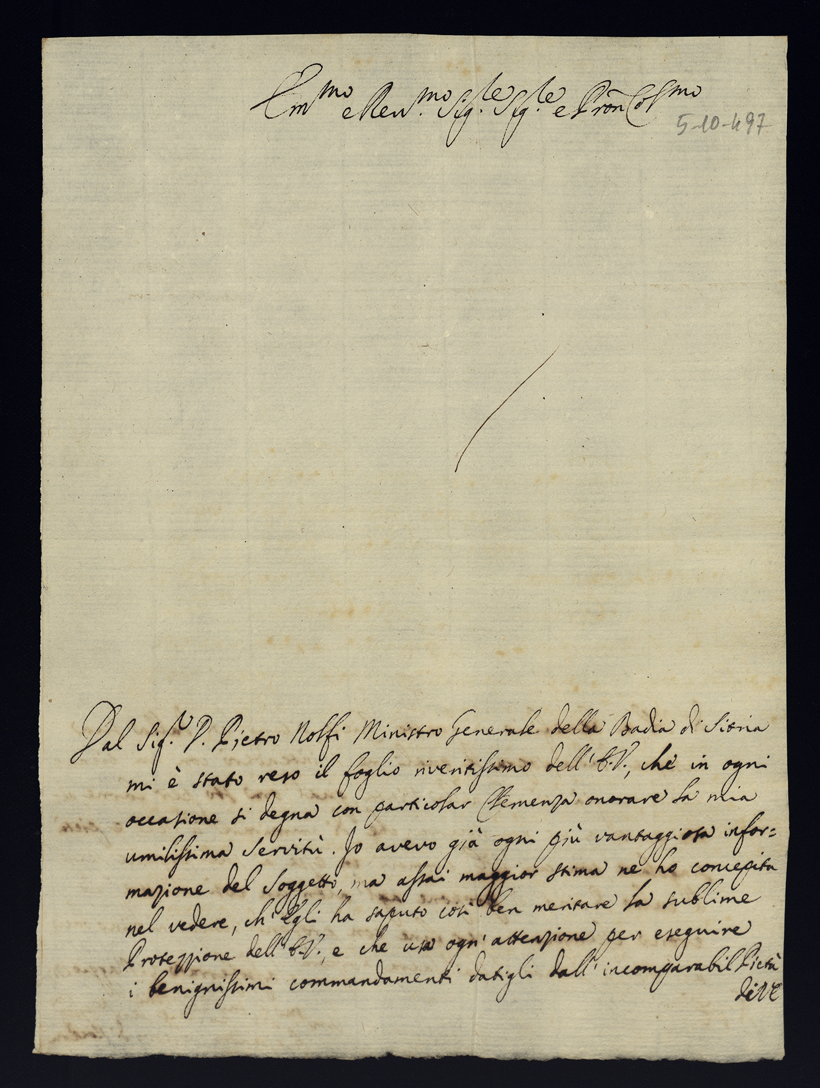 Em.mo e Rev.mo Sig.re Sig.re e Pron Col.mo
5-10-497
Dal Sig.r D. Pietro Nolfi Ministro Generale della Badia di Sitria
mi è stato reso il foglio riveritissimo dell'E.V., che in ogni
occasione si degna con particolar Clemenza onorare la mia
umilissima servitù. Io avevo già ogni più vantaggiosa infor=
mazione del Soggetto, ma assai maggior stima ne ho concepita
nel vedere, ch'Egli ha saputo così ben meritare la sublime
Protezzione dell'E.V. e che usa ogn'attenzione per eseguire
i benignissimi commandamenti datigli dall'incomparabil Pietà
di V.E.